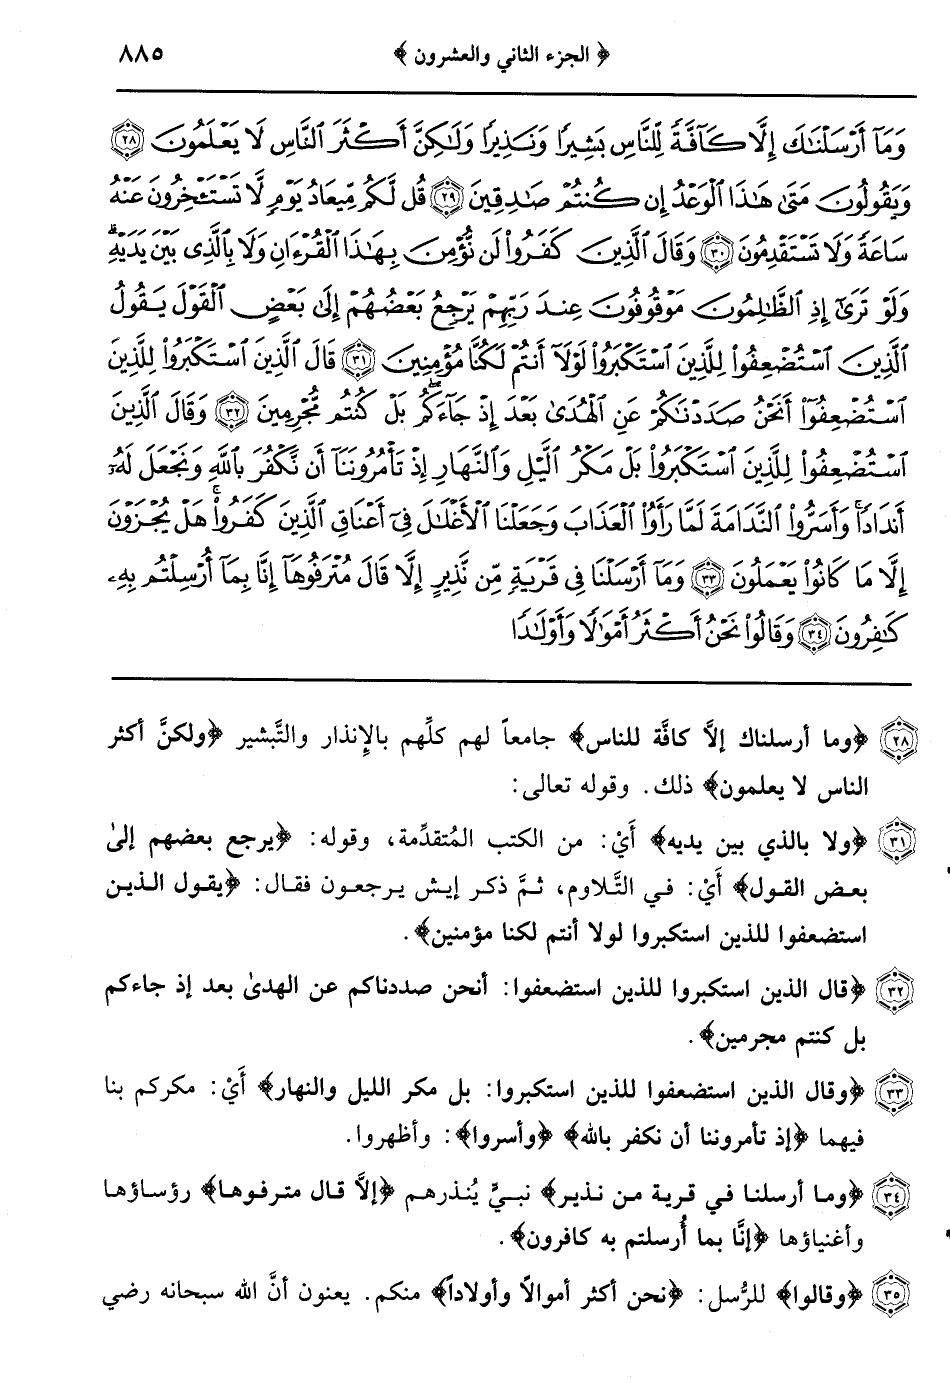 ﴿ الجزء الثاني والعشرون ﴾ ٨٨٥
وَمَآ أَرْسَلْنَٰكَ إِلَّا كَآفَّةً لِّلنَّاسِ بَشِيرًا وَنَذِيرًا وَلَٰكِنَّ أَكْثَرَ ٱلنَّاسِ لَا يَعْلَمُونَ ٢٨
وَيَقُولُونَ مَتَىٰ هَٰذَا ٱلْوَعْدُ إِن كُنتُمْ صَٰدِقِينَ ٢٩ قُل لَّكُم مِّيعَادُ يَوْمٍ لَّا تَسْتَـْٔخِرُونَ عَنْهُ
سَاعَةً وَلَا تَسْتَقْدِمُونَ ٣٠ وَقَالَ ٱلَّذِينَ كَفَرُوا۟ لَن نُّؤْمِنَ بِهَٰذَا ٱلْقُرْءَانِ وَلَا بِٱلَّذِى بَيْنَ يَدَيْهِ ۗ
وَلَوْ تَرَىٰٓ إِذِ ٱلظَّٰلِمُونَ مَوْقُوفُونَ عِندَ رَبِّهِمْ يَرْجِعُ بَعْضُهُمْ إِلَىٰ بَعْضٍ ٱلْقَوْلَ يَقُولُ
ٱلَّذِينَ ٱسْتُضْعِفُوا۟ لِلَّذِينَ ٱسْتَكْبَرُوا۟ لَوْلَآ أَنتُمْ لَكُنَّا مُؤْمِنِينَ ٣١ قَالَ ٱلَّذِينَ ٱسْتَكْبَرُوا۟ لِلَّذِينَ
ٱسْتُضْعِفُوٓا۟ أَنَحْنُ صَدَدْنَٰكُمْ عَنِ ٱلْهُدَىٰ بَعْدَ إِذْ جَآءَكُم ۖ بَلْ كُنتُم مُّجْرِمِينَ ٣٢ وَقَالَ ٱلَّذِينَ
ٱسْتُضْعِفُوا۟ لِلَّذِينَ ٱسْتَكْبَرُوا۟ بَلْ مَكْرُ ٱلَّيْلِ وَٱلنَّهَارِ إِذْ تَأْمُرُونَنَآ أَن نَّكْفُرَ بِٱللَّهِ وَنَجْعَلَ لَهُۥٓ
أَندَادًا ۚ وَأَسَرُّوا۟ ٱلنَّدَامَةَ لَمَّا رَأَوُا۟ ٱلْعَذَابَ وَجَعَلْنَا ٱلْأَغْلَٰلَ فِىٓ أَعْنَاقِ ٱلَّذِينَ كَفَرُوا۟ ۚ هَلْ يُجْزَوْنَ
إِلَّا مَا كَانُوا۟ يَعْمَلُونَ ٣٣ وَمَآ أَرْسَلْنَا فِى قَرْيَةٍ مِّن نَّذِيرٍ إِلَّا قَالَ مُتْرَفُوهَآ إِنَّا بِمَآ أُرْسِلْتُم بِهِۦ
كَٰفِرُونَ ٣٤ وَقَالُوا۟ نَحْنُ أَكْثَرُ أَمْوَٰلًا وَأَوْلَٰدًا
٢٨ ﴿وما أرسلناك إلاَّ كافَّة للناس﴾ جامعاً لهم كلِّهم بالإنذار والتَّبشير ﴿ولكنَّ أكثر
الناس لا يعلمون﴾ ذلك. وقوله تعالى:
٣١ ﴿ولا بالذي بين يديه﴾ أَيْ: من الكتب المُتقدِّمة، وقوله: ﴿يرجع بعضهم إلىٰ
بعض القول﴾ أَيْ: في التَّلاوم، ثمَّ ذكر إيش يرجعون فقال: ﴿يقول الذين
استضعفوا للذين استكبروا لولا أنتم لكنا مؤمنين﴾.
٣٢ ﴿قال الذين استكبروا للذين استضعفوا: أنحن صددناكم عن الهدىٰ بعد إذ جاءكم
بل كنتم مجرمين﴾.
٣٣ ﴿وقال الذين استضعفوا للذين استكبروا: بل مكر الليل والنهار﴾ أَيْ: مكركم بنا
فيهما ﴿إذ تأمروننا أن نكفر بالله﴾ ﴿وأسروا﴾: وأظهروا.
٣٤ ﴿وما أرسلنا في قرية من نذير﴾ نبيٍّ يُنذرهم ﴿إلاَّ قال مترفوها﴾ رؤساؤها
وأغنياؤها ﴿إنَّا بما أُرسلتم به كافرون﴾.
٣٥ ﴿وقالوا﴾ للرُّسل: ﴿نحن أكثر أموالاً وأولاداً﴾ منكم. يعنون أنَّ الله سبحانه رضي